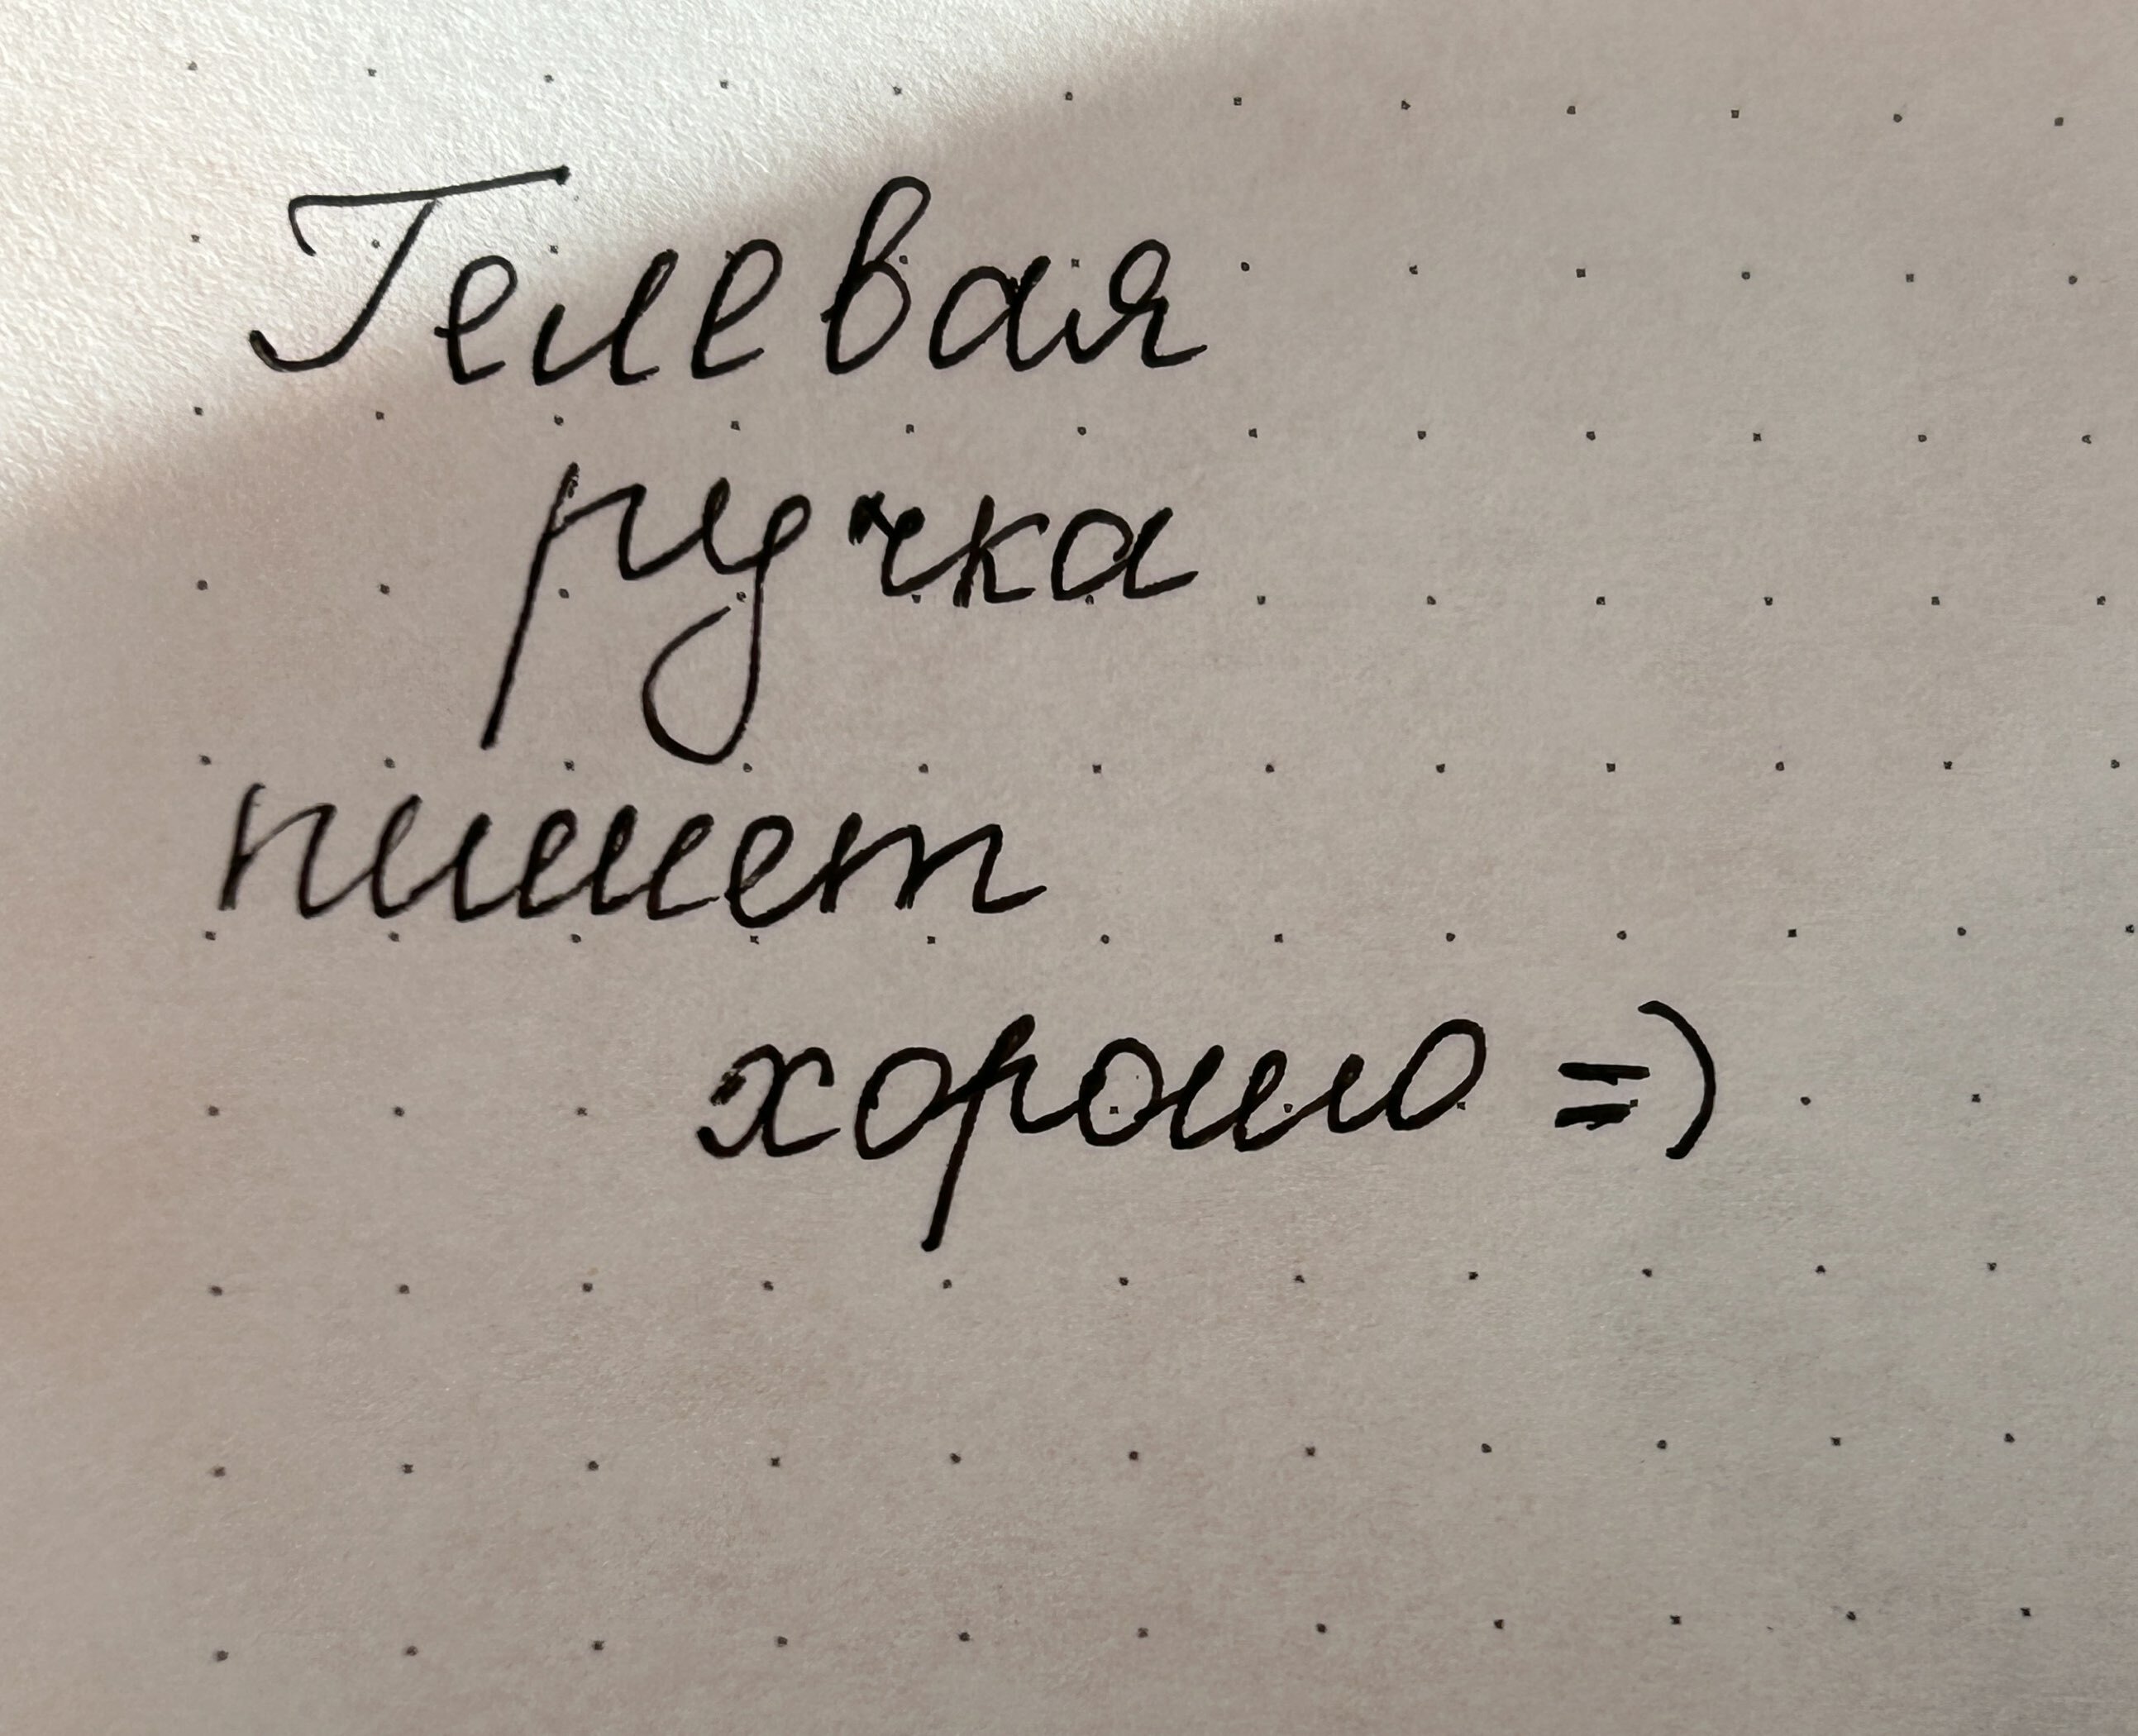 Гелевая
ручка
пишет
хорошо =)